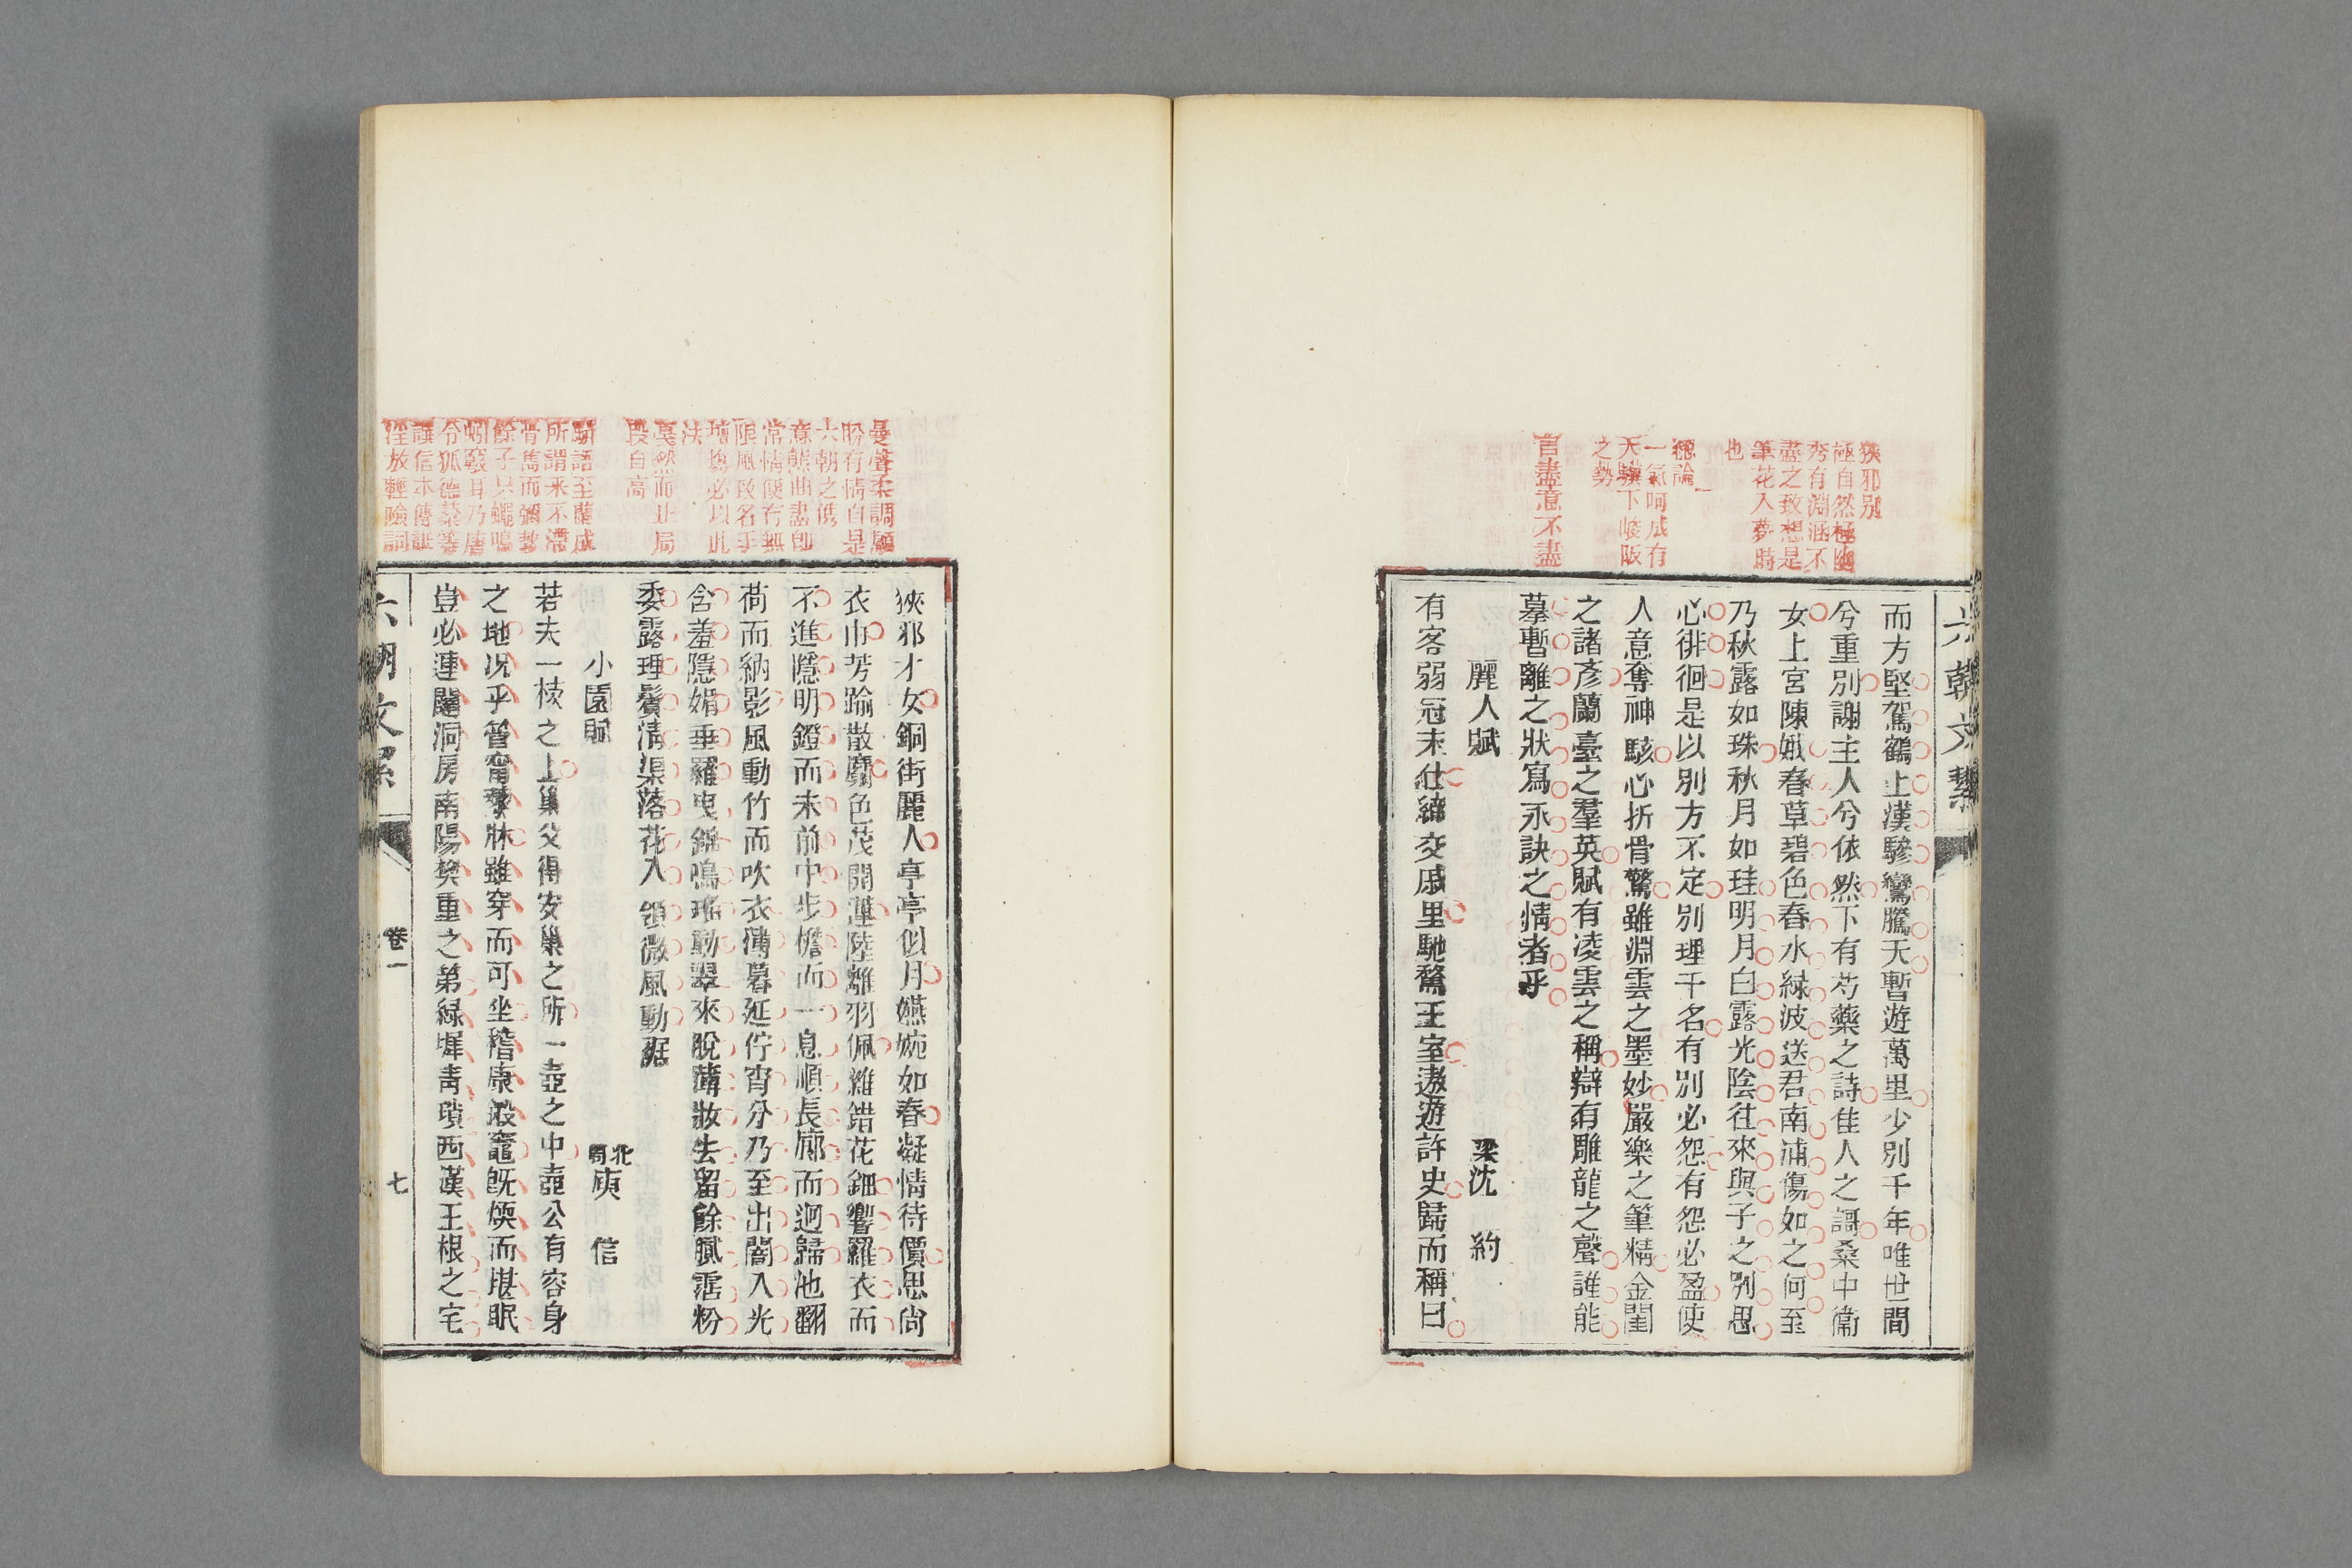 六朝文絜
狹邪別
極自然極幽
秀有淵涵不
盡之致想是
筆花入夢時
也
總論
一氣呵成有
天驥下峻阪
之勢
言盡意不盡
而方堅駕鶴上漢驂鸞騰天暫遊萬里少別千年唯世間
兮重別謝主人兮依然下有芍藥之詩佳人之謌桑中衞
女上宮陳娥春草碧色春水綠波送君南浦傷如之何至
乃秋露如珠秋月如珪明月白露光陰往來與子之別思
心徘徊是以別方不定別理千名有別必怨有怨必盈使
人意奪神駭心折骨驚雖淵雲之墨妙嚴樂之筆精金閨
之諸彥蘭臺之羣英賦有凌雲之稱辯有雕龍之聲誰能
摹暫離之狀寫永訣之情者乎
麗人賦 梁沈 約
有客弱冠未仕締交戚里馳騖王室遨遊許史歸而稱曰
曼聲柔調顧
盼有情自是
六朝之儁
意態曲盡即
常情便有無
限風致名手
擅場必以此
法
戛然而止局
段自高
駢語至蘭成
所謂采不滯
骨雋而彌
餘子只蠅鳴
蚓竅耳乃唐
令狐德棻等
譔信本傳詆
淫放輕險詞
狹邪才女銅街麗人亭亭似月嬿婉如春凝情待價思尙
衣巾芳踰散麝色茂開蓮陸離羽佩雜錯花鈿響羅衣而
不進隱明鐙而未前中步檐而一息順長廊而迴歸池翻
荷而納影風動竹而吹衣薄暮延佇宵分乃至出闇入光
含羞隱媚垂羅曳錦鳴瑤動翠來脫薄妝去留餘膩霑粉
委露理鬢清渠落花入領微風動裾
小園賦 北周庾 信
若夫一枝之上巢父得安巢之所一壺之中壺公有容身
之地况乎管甯藜牀雖穿而可坐嵇康鍛竈旣煗而堪眠
豈必連闥洞房南陽樊重之第綠墀靑瑣西漢王根之宅
六朝文絜
卷一
七